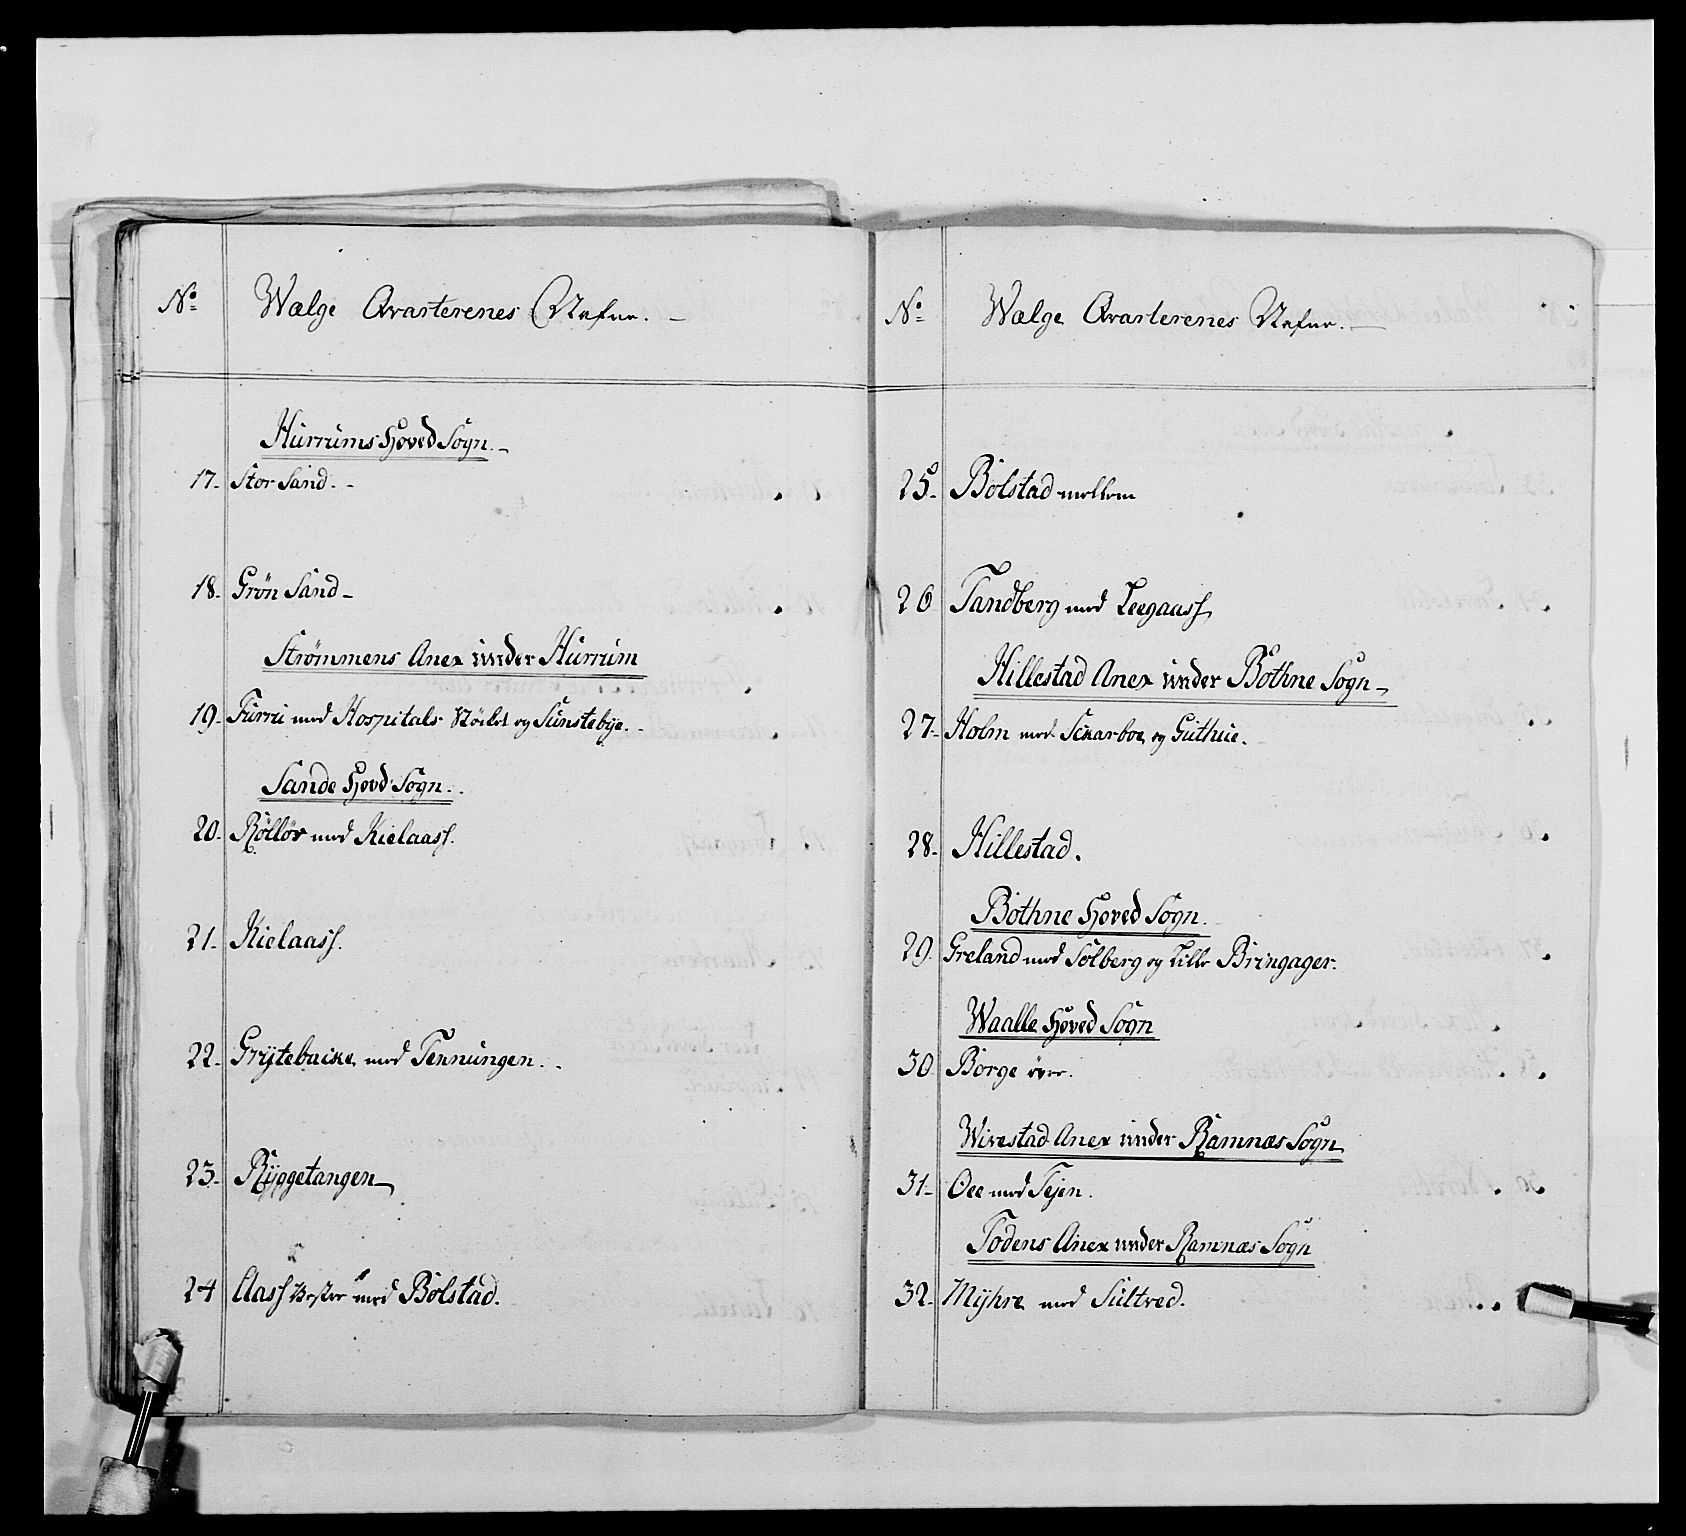 No Wælge Qvarterenes Nafne. –
Hurrums Hoved Sogn. –
17. Stor Sand. –
18. Grön Sand –
Strömmens Anex under Hurrum
19. Furru med Hospitals og Sunstebye. –
Sande Hovd Sogn.
20. Röllör med Kielaass.
21. Kielaass.
22. Grÿtebacke med Tennungen.
23. Rÿggetangen
24 Aass Vester med Bolstad.
No Wælge Qvarterenes Nafne. –
25. Bolstad mellem
26 Tandberg med Leegaass
Hillestad Anex under Bothne Sogn –
27. Holm med Sckarboe og Guthue.
28. Hillestad.
Bothne Hoved Sogn.
29. Greland med Solberg og Lille Bringager.
Waalle Hoved Sogn
30. Borge övre.
Wivestad Anex under Ramnæs Sogn
31. Oee med Fejen.
Fodens Anex under Ramnæs Sogn
32. Mÿhre med Sultved.